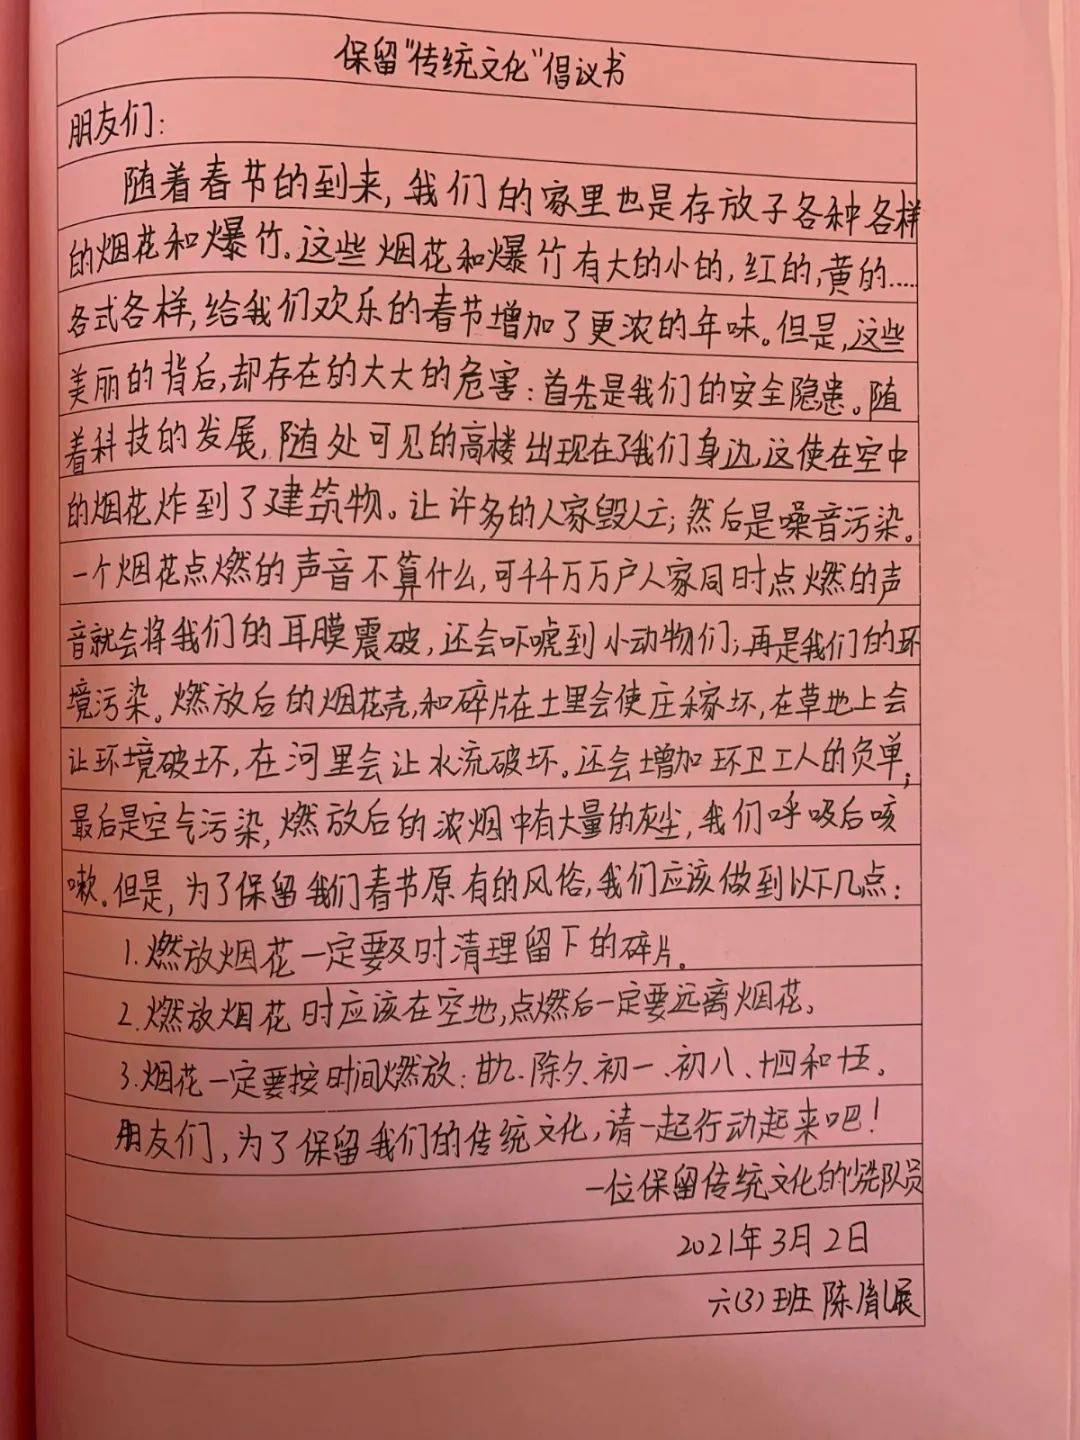 保留“传统文化”倡议书
朋友们：
随着春节的到来，我们的家里也是存放子各种各样
的烟花和爆竹。这些烟花和爆竹有大的小的，红的，黄的……
各式各样，给我们欢乐的春节增加了更浓的年味。但是，这些
美丽的背后，却存在的大大的危害：首先是我们的安全隐患。随
着科技的发展，随处可见的高楼出现在了我们身边，这使在空中
的烟花炸到了建筑物。让许多的人家毁人亡；然后是噪音污染。
一个烟花点燃的声音不算什么，可千千万万户人家同时点燃的声
音就会将我们的耳膜震破，还会吓唬到小动物们；再是我们的环
境污染。燃放后的烟花壳，和碎片在土里会使庄稼坏，在草地上会
让环境破坏，在河里会让水流破坏。还会增加环卫工人的负单；
最后是空气污染，燃放后的浓烟中有大量的灰尘，我们呼吸后咳
嗽。但是，为了保留我们春节原有的风俗，我们应该做到以下几点：
1.燃放烟花一定要及时清理留下的碎片。
2.燃放烟花时应该在空地，点燃后一定要远离烟花。
3.烟花一定要按时间燃放：廿九、除夕、初一、初八、十四和十五。
朋友们，为了保留我们的传统文化，请一起行动起来吧！
一位保留传统文化的少先队员
2021年3月2日
六(3)班 陈胤展